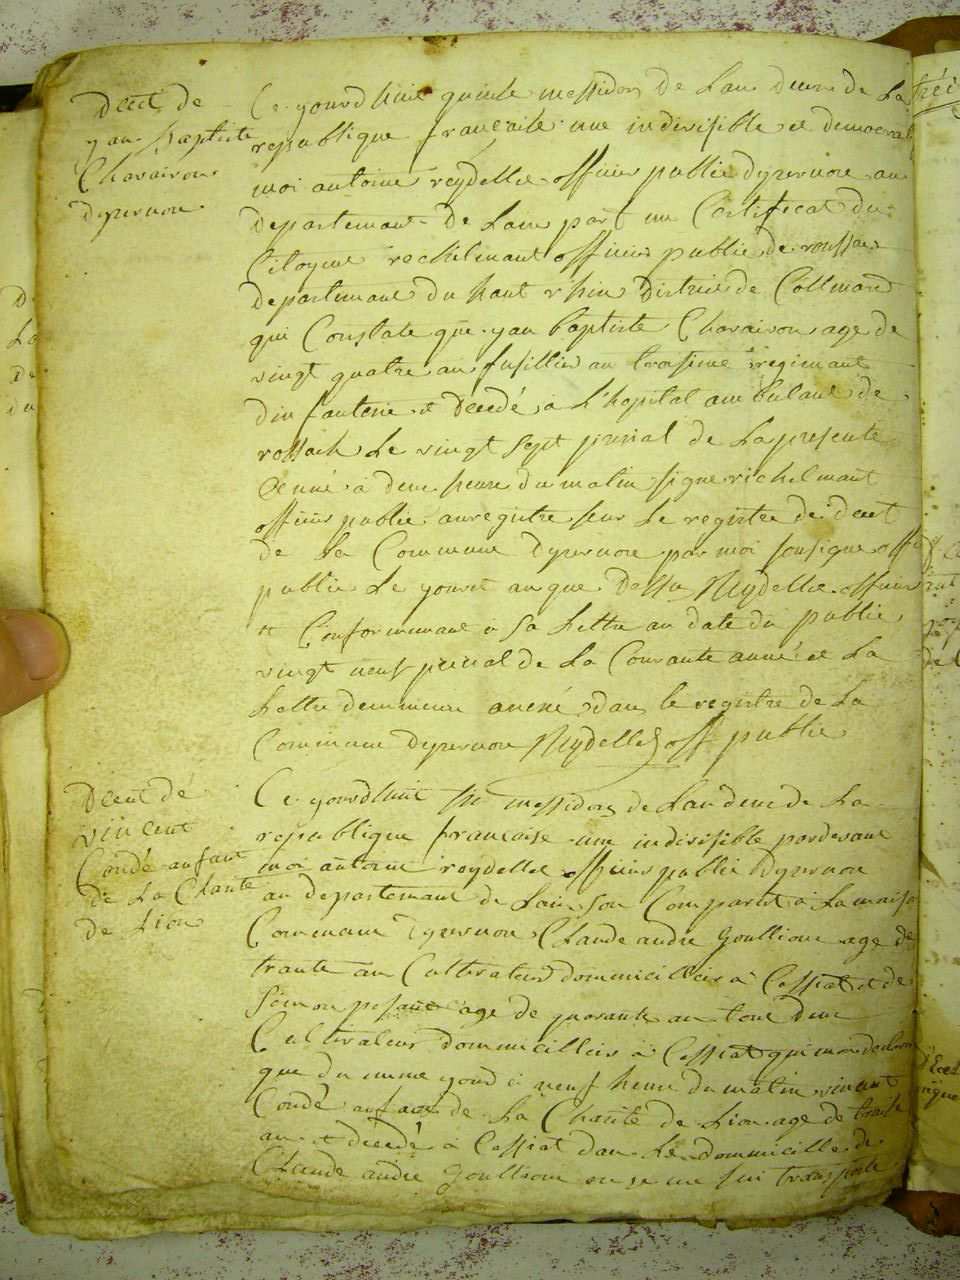 Décet de
yan Baptiste
Chavairon
dyzernore
Ce yourdhuit quinse messidor de Lan deux de La
republique francaise une indivisible et democrat
moi antoine reydellet officier public dyzernore au
departemant de Lain part un Certificat du
Citoyent rechelmant officier public de rouffac
departemant du haut rhin District de Collmard
qui Constate que yan baptiste Chavairon age de
vingt quatre an fusillier au troisime regimant
dinfanterie et Decedé à L'hopital anbulant de
rossach Le vingt sept prerial de La presente
année à deux heure du matin signe richelmant
officier public anregistre sur Le registre de decet
de La Commune dyzernore par moi sousigne offi
public Le yourt an que Dessu Reydellet officier
et Conformemant à Sa Lettre an date du public
vingt neuf prerial de La Courante année et La
Lettre demmeure anexé dans le registre de La
Commune dyzernore Reydellet off public
Decet dé
vincent
Condé anfant
de La Charité
de Lion
Ce yourdhuit six messidor de Lan deux de La
republique francaise une indivisible pardevant
moi antoine reydellet officier public dyzernore
au departemant de Lain son Comparut à La maison
Commune Dyzernore Claude andre Goultion age de
trante an Cultivateur dommicillier à Cessiat et de
Simon age de quarante an tout deux
Cultivateur dommicillier à Cessiat qui mon declare
que du meme yourd à neuf heure du matin vincent
Condé anfant de La Charité de Lion age de trante
an et decedé à Cessiat dan Le dommicille de
Claude andre Goultion ou je me sui transporte